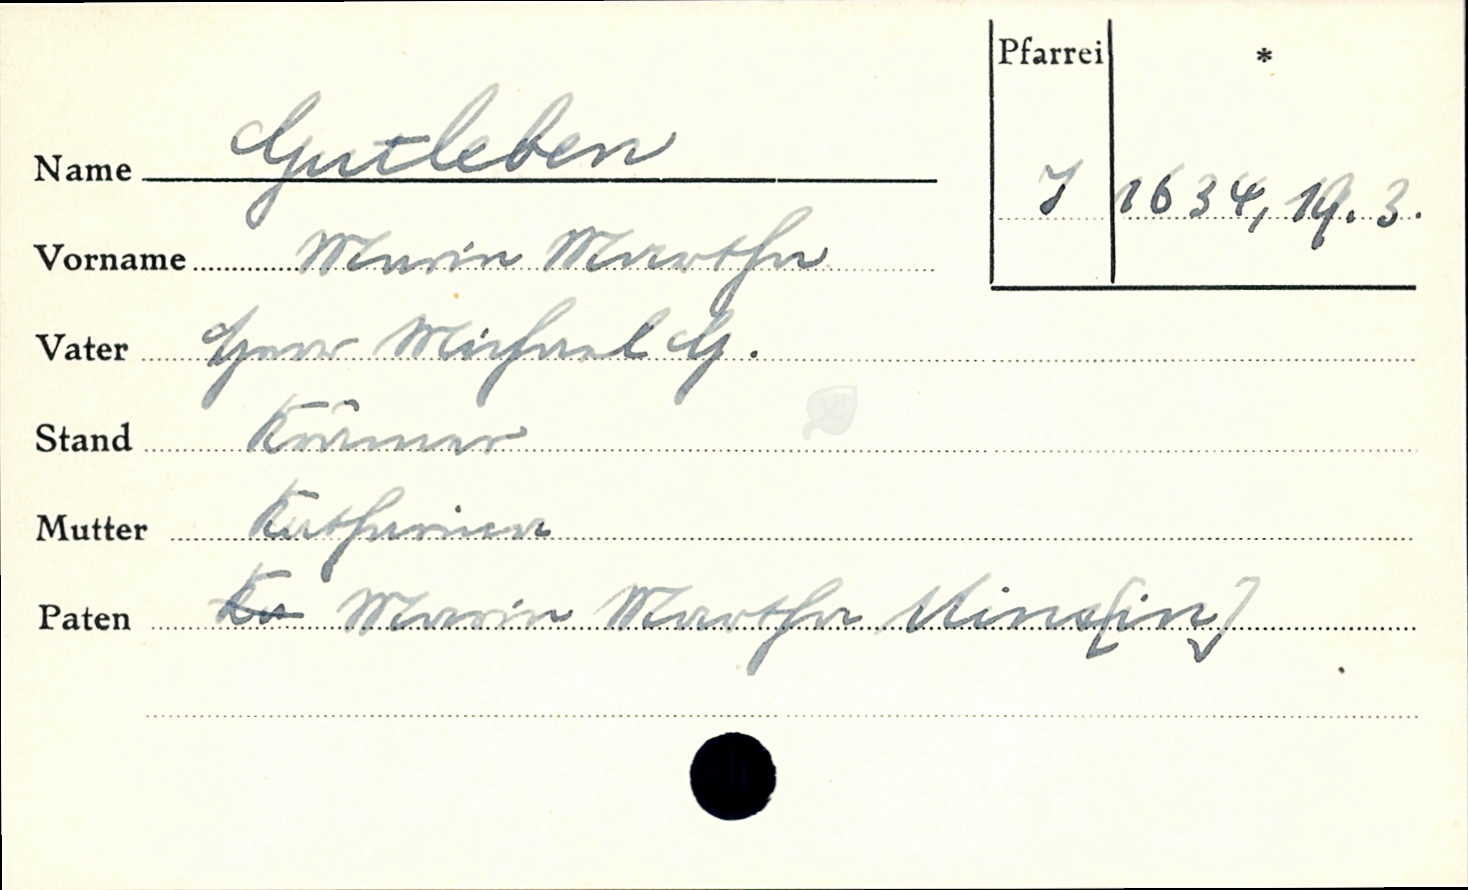 Pfarrei *
Name Gutleben
J 1634, 19. 3.
Vorname Maria Martha
Vater Herr Michael G.
Stand Krämer
Mutter Katharina
Paten Ka Maria Martha